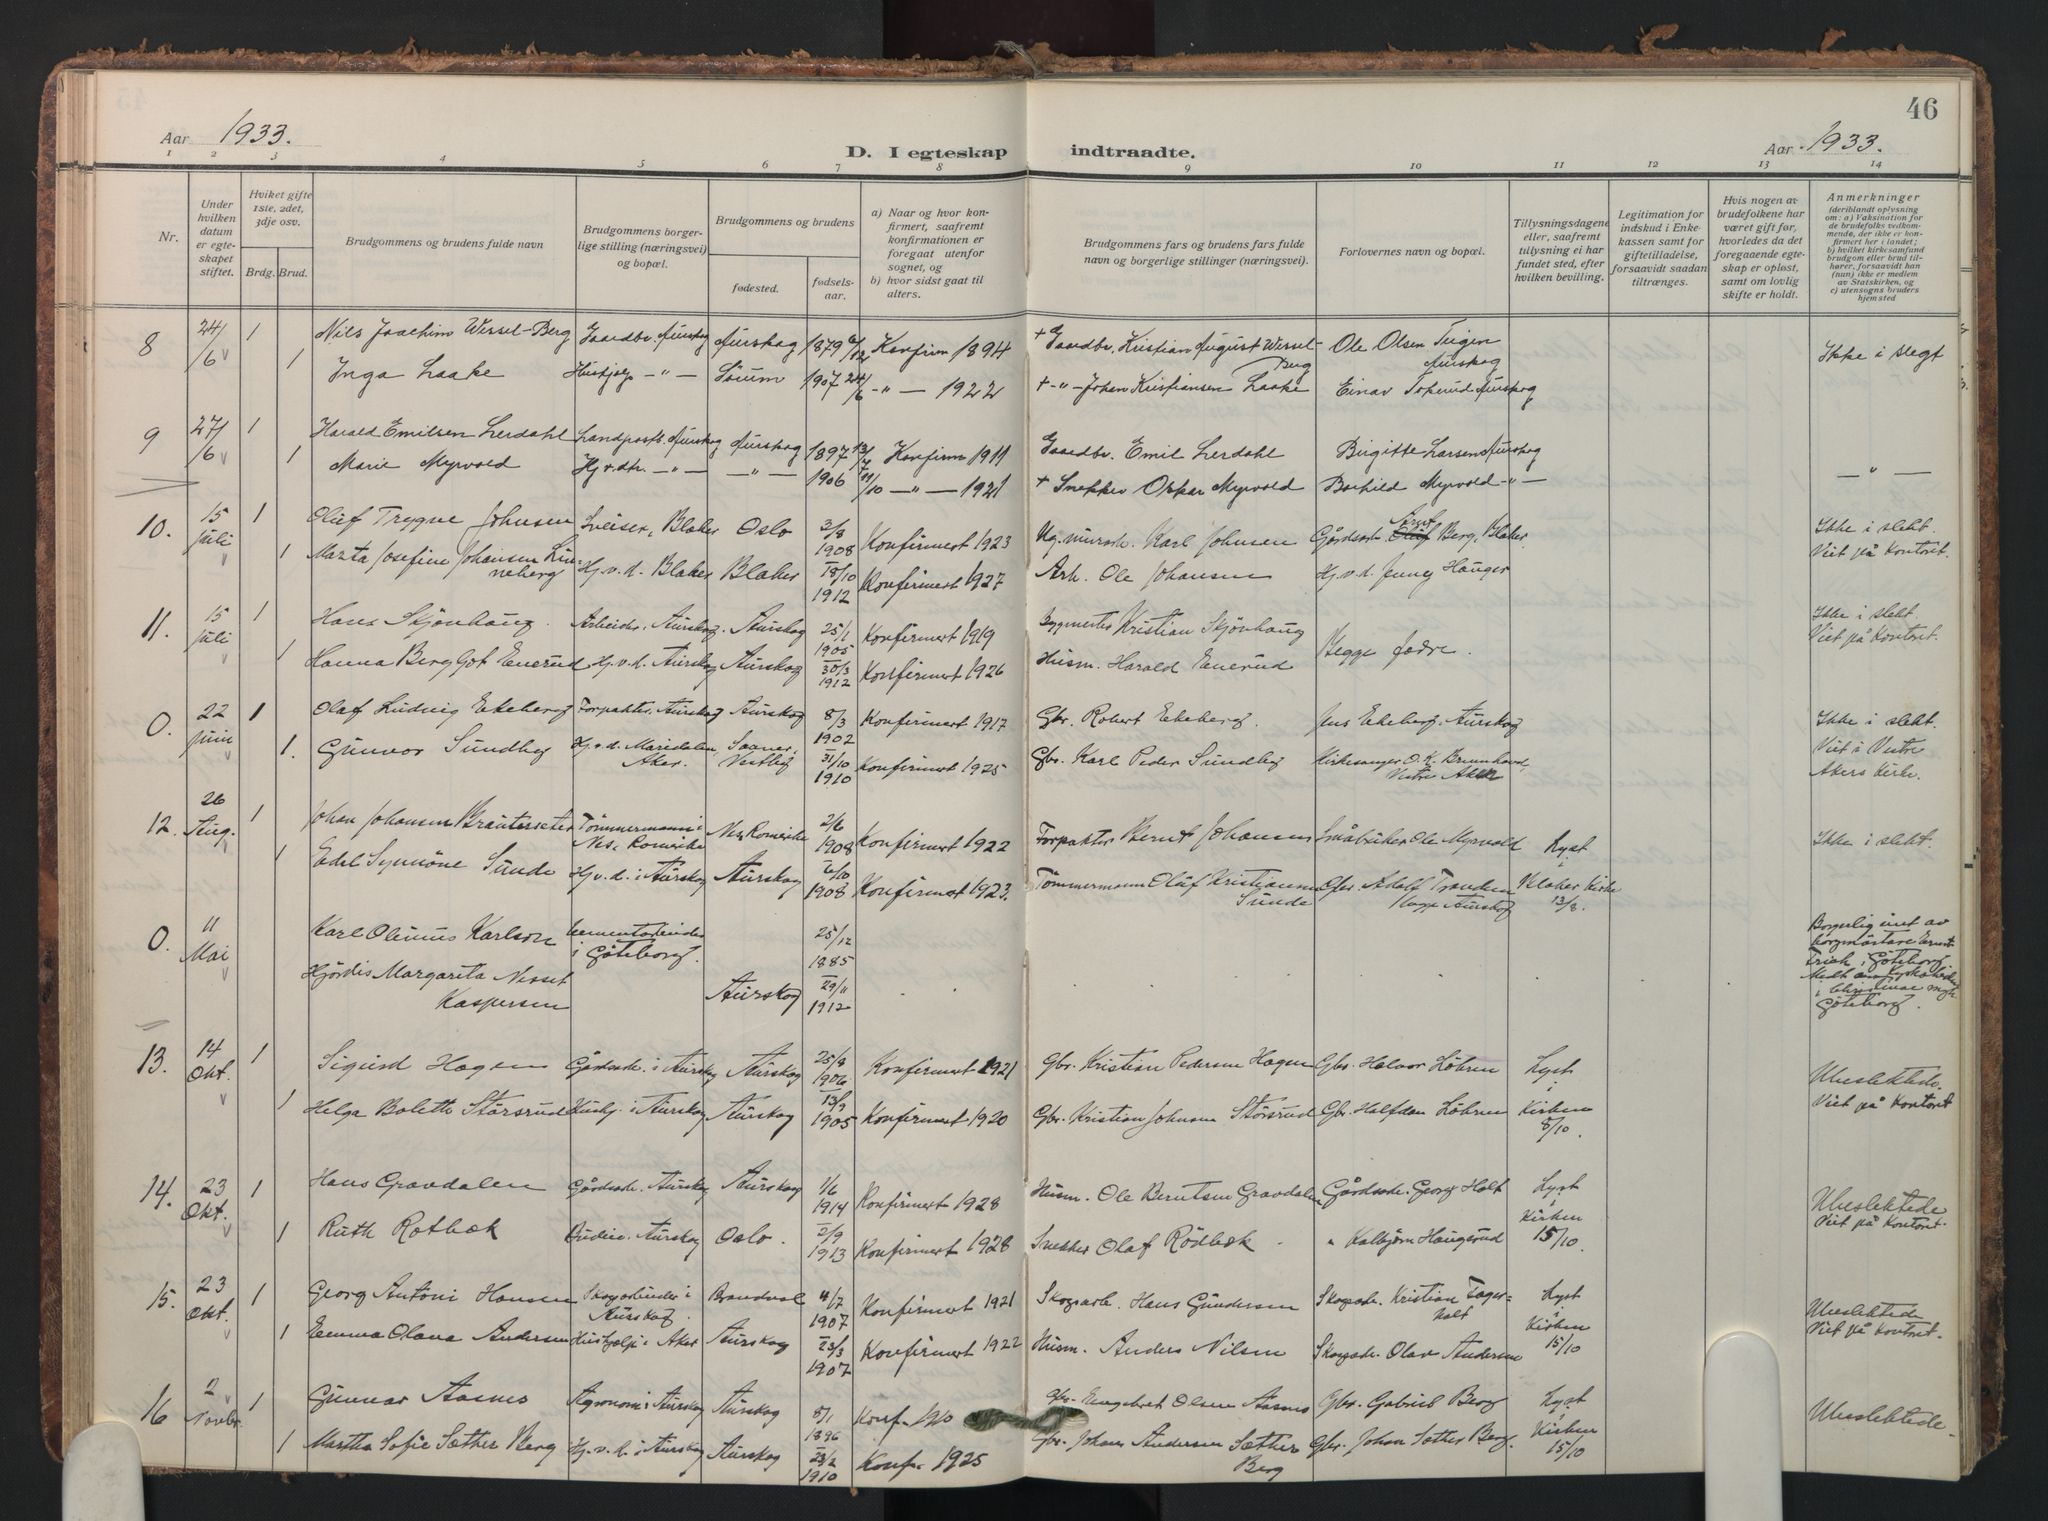 46
Aar 1933.
D. I egteskap indtraadte.
Aar 1933.
1 2 3 4 5 6 7 8 9 10 11 12 13 14
Nr.
Under hvilken datum er egteskapet stiftet.
Hviket gifte 1ste, 2det, 3dje osv.
Brdg. Brud.
Brudgommens og brudens fulde navn
Brudgommens borgerlige stilling (næringsvei) og bopæl.
Brudgommens og brudens
fødested.
fødselsaar.
a) Naar og hvor konfirmert, saafremt konfirmationen er foregaat utenfor sognet, og
b) hvor sidst gaat til alters.
Brudgommens fars og brudens fars fulde navn og borgerlige stillinger (næringsvei).
Forlovernes navn og bopæl.
Tillysningsdagene eller, saafremt tillysning ei har fundet sted, efter hvilken bevilling.
Legitimation for indskud i Enkekassen samt for giftetilladelse, forsaavidt saadan tiltrænges.
Hvis nogen av brudefolkene har været gift før, hvorledes da det foregaaende egteskap er opløst, samt om lovlig skifte er holdt.
Anmerkninger (deriblandt oplysning om: a) Vaksination for de brudefolks vedkommende, der ikke er konfirmert her i landet; b) hvilket kirkesamfund brudgom eller brud tilhører, forsaavidt han (nun) ikke er medlem av Statskirken, og c) utensogns bruders hjemsted
8 24/6 1 Nils Joachim Wessel-Berg Gaardbr. Aurskog Aurskog 1879 6/12 Konfirm 1894 + Gaardbr. Kristian August Wessel-Berg Ole Olsen Tugen Aurskog Ikke i slegt
1 Inga Laake Hushjelp -"- Sörum 1907 24/6 -"- 1922 + -"- Johan Kristiansen Laake Einar Aurskog
9 27/6 1 Harald Emilsen Lerdahl Landpostb. Aurskog Aurskog 1897 13/7 Konfirm 1911 Gaardbr. Emil Lerdahl Birgitte Larsen Aurskog -"-
1 Marie Myrvold Hj.v.dtr. -"- -"- 1906 11/10 -"- 1921 + Snekker Oskar Myrvold Borhild Myrvold -"-
10. 15 juli 1 Oluf Trygve Johnsen Sveiser, Blaker Oslo 3/8 1908 Konfirmert 1923 Karl Johnsen Gårdsarb. Arnt Oluf Berg, Blaker. Ikke i slekt. Viet på Kontoret.
1 Marta Josefine Johansen Linneberg Hj.v.d. Blaker Blaker 18/10 1912 Konfirmert 1927 Arb. Ole Johansen Hj.v.d. Jenny Hauger
11. 15 juli 1 Hans Skjönhaug. Arbeider. Aurskog. Aurskog 25/1 1905 Konfirmert 1919 Byggmester Kristian Skjönhaug Begge fedre. Ikke i slekt. Viet på Kontoret.
1 Hanna Bergljot Enerud Hj.v.d. Aurskog Aurskog 30/3 1912 Konfirmert 1926 Husm. Harald Enerud
0. 22 juni 1 Olaf Ludvig Ekeberg Forpakter. Aurskog Aurskog 8/3 1902 Konfirmert 1917 Gbr. Robert Ekeberg. Jens Ekeberg. Aurskog Ikke i slekt.
1. Gunvor Sundby Hj.v.d. Maridalen Aker. Saaner, Vestby 31/10 1910 Konfirmert 1925 Gbr. Karl Peder Sundby Kirkesanger O.K. Brunhovd, Vestre Aker Viet i Vestre Akers Kirke.
12. 26 Aug. 1 Johan Johansen Brauterseter Tömmermann i Nes, Romerike Nes Romerike 2/6 1908 Konfirmert 1922 Forpakter Bernt Johansen Småbruker Ole Myrvold Lyst i Ikke i slekt.
1 Edel Synnöve Sunde Hj.v.d. i Aurskog Aurskog 6/10 1908 Konfirmert 1923. Tömmermann Oluf Kristiansen Sunde Gbr. Adolf Tranden Begge Aurskog Blaker Kirke 13/8.
0. 11 Mai Karl Olinius Karlson Cementarbeider i Göteborg. 25/12 1885 Borgerlig viet av borgmästare Ernst Trick i Göteborg
Hjördis Margareta Nesset Kaspersen Aurskog 29/11 1912 i Christinae Göteborg.
13. 14 Okt. 1 Sigurd Hagen Gårdsarb. i Aurskog Aurskog 25/8 1906 Konfirmert 1921 Gbr. Kristian Pedersen Hagen Gbr. Halvor Löhren Lyst i Kirken 8/10. Ubeslektede. Viet på Kontoret
1 Helga Bolette Störsrud Hush. i Aurskog Aurskog 13/9 1905 Konfirmert 1920 Gbr. Kristian Johnsen Störsrud Gbr. Halfdan Löhren
14. 23 Okt. 1 Hans Gravdalen Gårdsarb. Aurskog Aurskog 1/6 1914 Konfirmert 1928 Husm. Ole Berntsen Gravdalen Gårdsarb. Georg Holt Lyst i Kirken 15/10. Ubeslektede Viet på Kontoret.
1 Ruth Rotbæk Budeie. Aurskog Oslo. 2/9 1913 Konfirmert 1928 Snekker Olaf Rödbæk " Kolbjörn Haugerud
15. 23 Okt. 1 Georg Antoni Hansen Skogarbeider i Aurskog. Brandval 4/7 1907 Konfirmert 1921 Skogsarb. Hans Gundersen Skogsarb. Kristian Fagerholt Lyst i Kirken 15/10 Ubeslektede Viet på Kontoret.
1 Emma Olava Andersen Hushjelp i Aker Aurskog 23/3 1907 Konfirmert 1922 Husm. Anders Nilsen Skogsarb. Olav Andersen
16 2 Novbr. 1 Gunnar Aasnes Agronom i Aurskog Aurskog 8/1 1896 Konf. 1910 Gbr. Engebret Olsen Aasnes Gbr. Gabriel Berg Lyst i Kirken 15/10 Ubeslektede.
1 Martha Sofie Sæther Berg Hj.v.d. i Aurskog Aurskog 23/2 1910 Konf. 1925 Gbr. Johan Andersen Sæther Berg Gbr. Johan Sæther Berg.